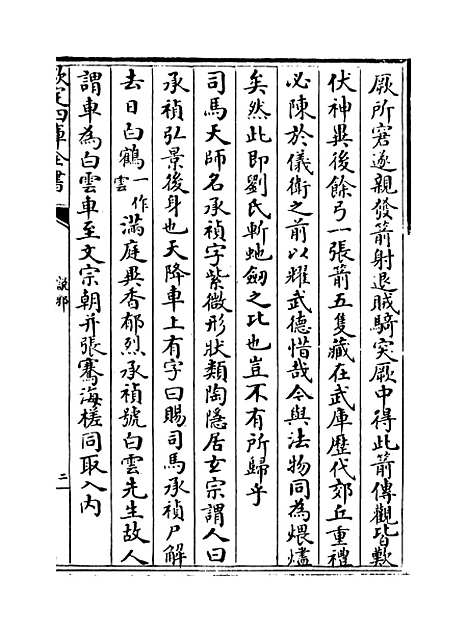 厥所窘遂親發箭射退賊騎突厥中得此箭傳觀皆歎
伏神異後餘弓一張箭五隻藏在武庫歷代郊丘重禮
必陳於儀衛之前以耀武德惜哉今與法物同為煨燼
矣然此即劉氏斬虵劒之比也豈不有所歸乎
司馬天師名承禎字紫微形狀類陶隱居玄宗謂人曰
承禎弘景後身也天降車上有字曰賜司馬承禎尸解
去日白鶴一作雲滿庭異香郁烈承禎號白雲先生故人
謂車為白雲車至文宗朝并張騫海槎同取入內
欽定四庫全書
說郛
二